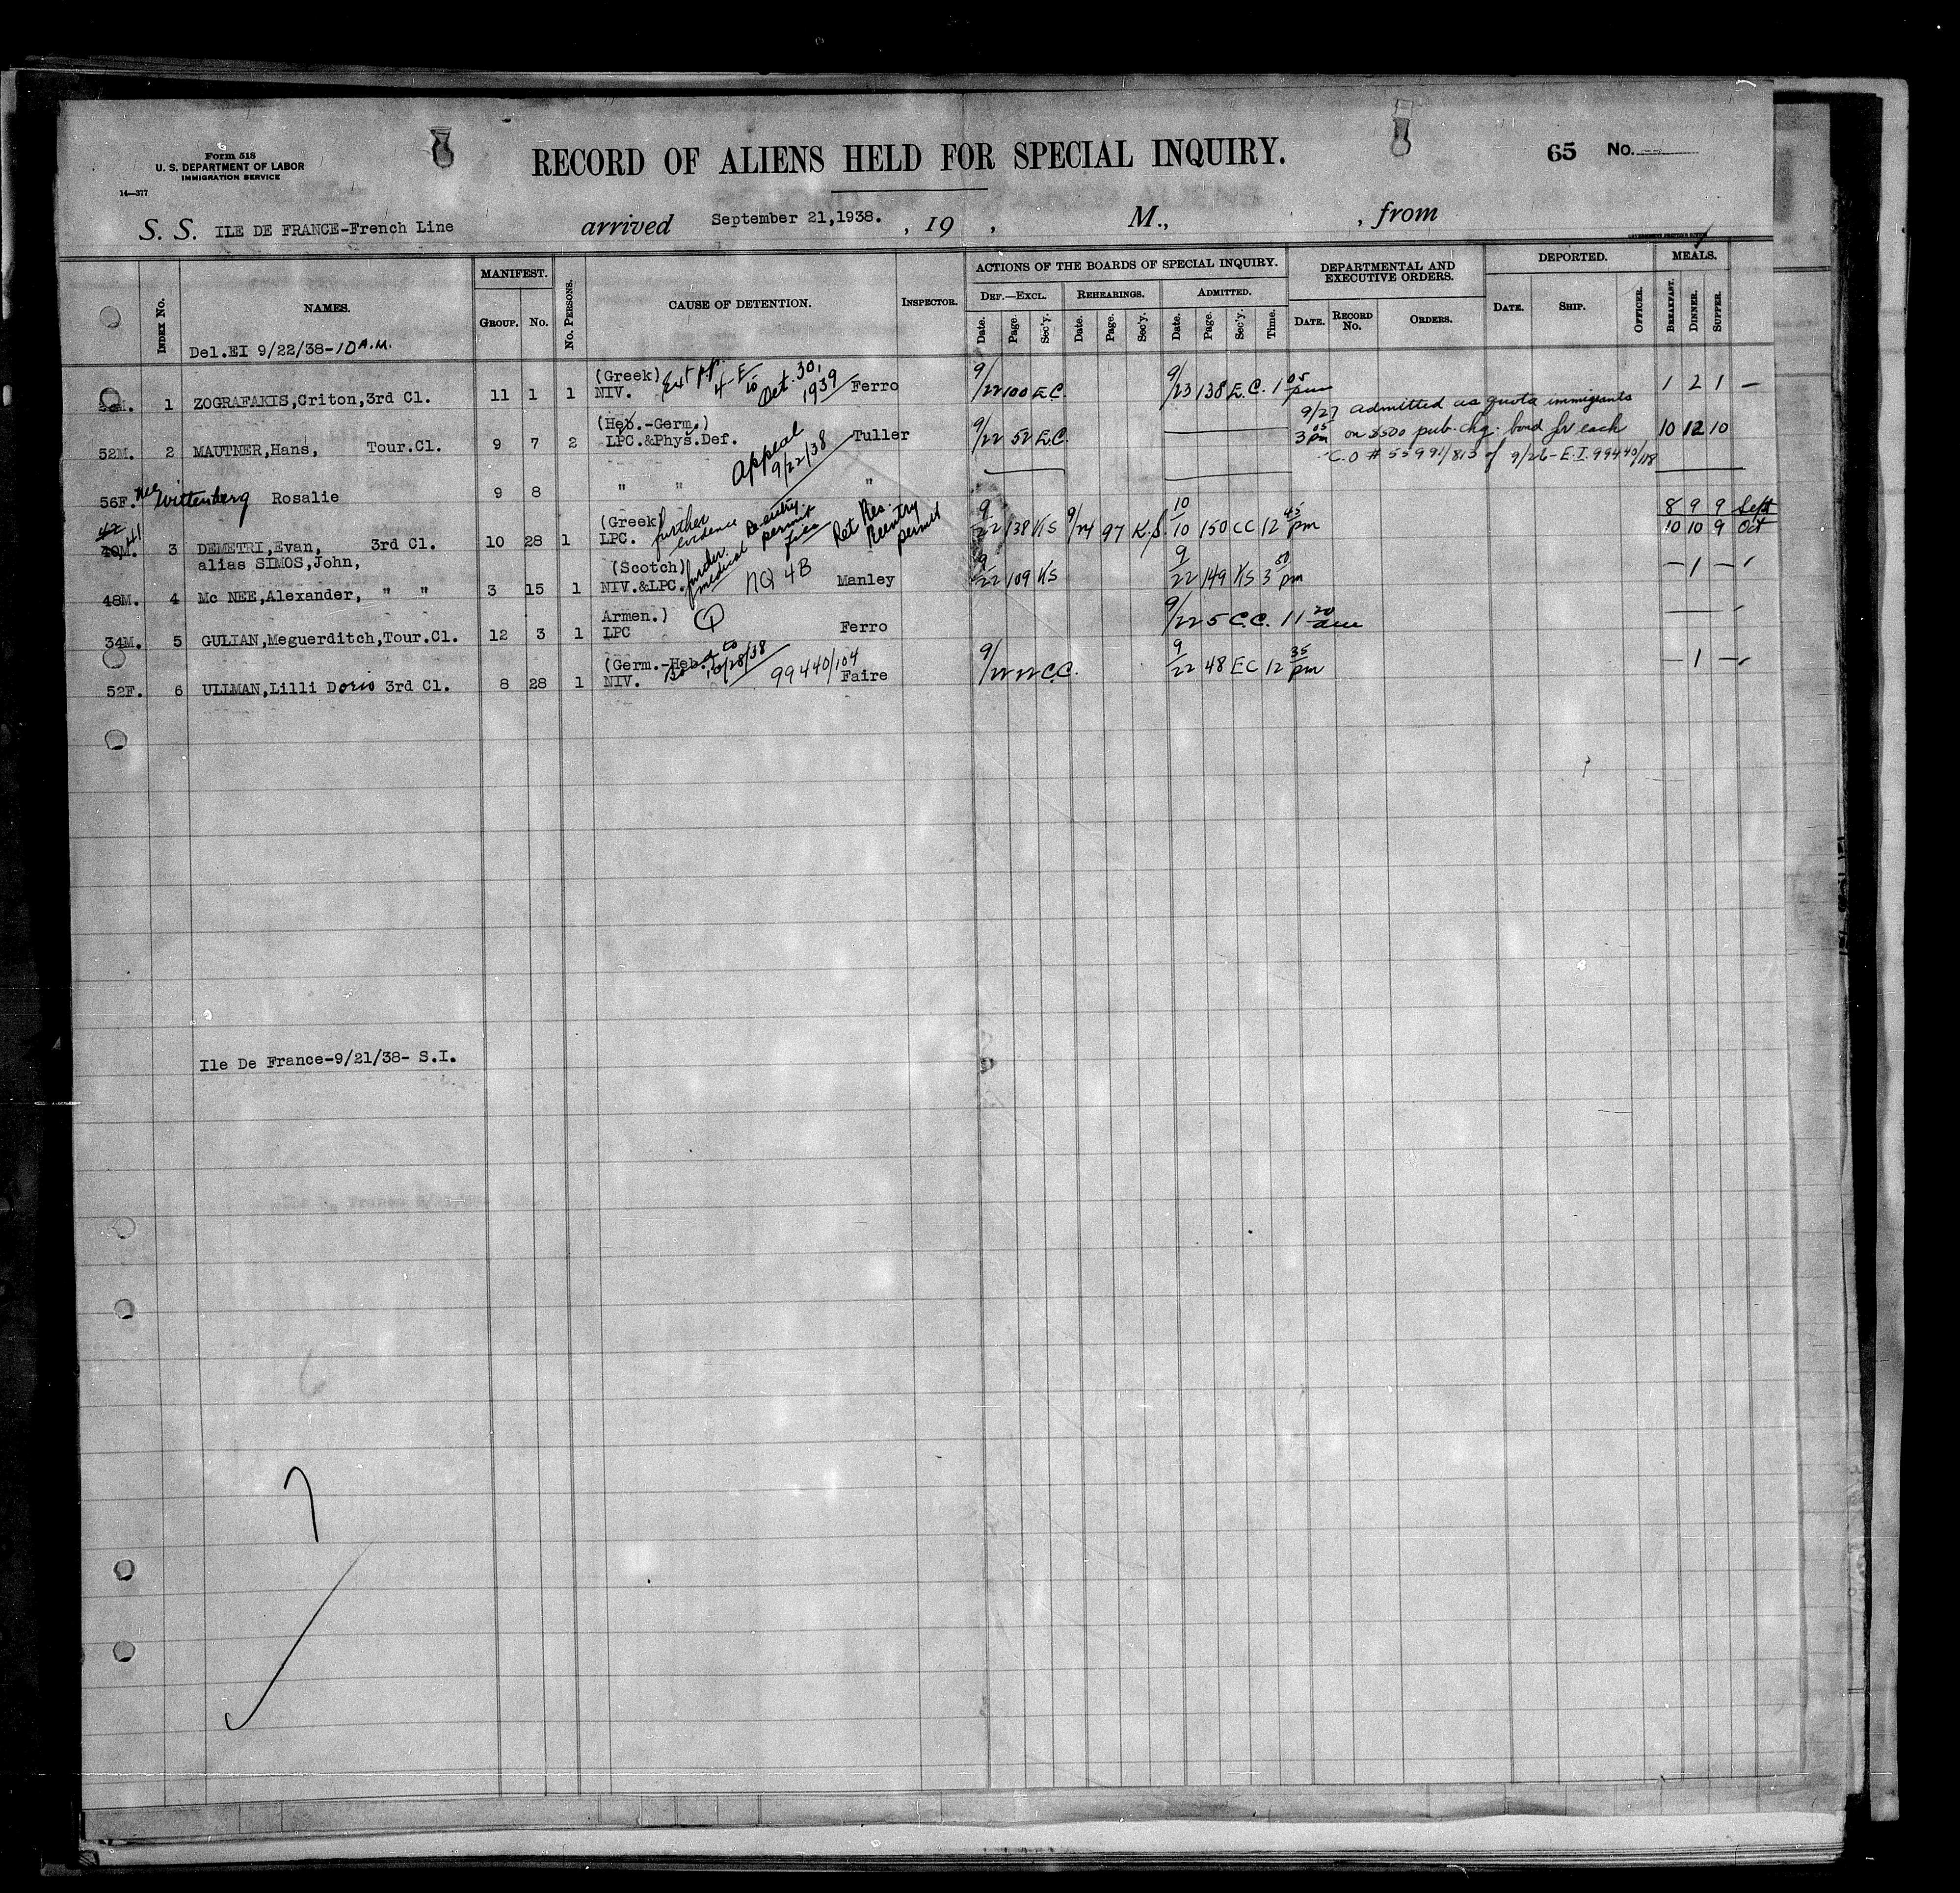 Form 518
U. S. DEPARTMENT OF LABOR
IMMIGRATION SERVICE
14—377
RECORD OF ALIENS HELD FOR SPECIAL INQUIRY.
65 No.
S. S. ILE DE FRANCE-French Line arrived September 21,1938. , 19 , M., , from
INDEX No. NAMES. MANIFEST. GROUP. No. No. PERSONS. CAUSE OF DETENTION. INSPECTOR.
ACTIONS OF THE BOARDS OF SPECIAL INQUIRY. DEF.—EXCL. Date. Page. Sec'y. REHEARINGS. Date. Page. Sec'y. ADMITTED. Date. Page. Sec'y. Time.
DEPARTMENTAL AND EXECUTIVE ORDERS. DATE. RECORD No. ORDERS.
DEPORTED. DATE. SHIP. OFFICER.
MEALS. BREAKFAST. DINNER. SUPPER.
Del.EI 9/22/38-10 A.M.
(Greek)
M. 1 ZOGRAFAKIS,Criton,3rd Cl. 11 1 1 NIV. 4-E to Oct. 30, 1939 Ferro 9/22 100 E.C. 9/23 138 E.C. 1 05 pm 1 2 1 —
(Heb.-Germ.)
52M. 2 MAUTNER,Hans, Tour.Cl. 9 7 2 LPC.&Phys.Def. Appeal 9/22/38 Tuller 9/22 52 E.C. 10 12 10
9/27 Admitted as quota immigrants
3 05 pm on $500 pub. chg. bond for each
C.O # 55991/813 of 9/26-E.I. 99440/118
56F. nee Wittenberg Rosalie 9 8 " " "
8 9 9 Sept
42 41
(Greek) further evidence Re-entry permit
40M. 3 DEMETRI,Evan, 3rd Cl. 10 28 1 LPC. Ret Res. Reentry permit 9/22 138 KS 9/24 97 K.S. 10/10 150 CC 12 45 pm 10 10 9 Oct
alias SIMOS,John,
(Scotch) further medical
48M. 4 Mc NEE,Alexander, " " 3 15 1 NIV.&LPC. NQ 4B Manley 9/22 109 KS 9/22 149 KS 3 50 pm — 1 —
Armen.)
34M. 5 GULIAN,Meguerditch,Tour.Cl. 12 3 1 LPC Ferro 9/22 5 C.C. 11 20 am
(Germ.-Heb.
52F. 6 ULLMAN,Lilli Doris 3rd Cl. 8 28 1 NIV. 10/28/38 99440/104 Faire 9/22 22 C.C. 9/22 48 EC 12 35 pm — 1 —
Ile De France-9/21/38- S.I.